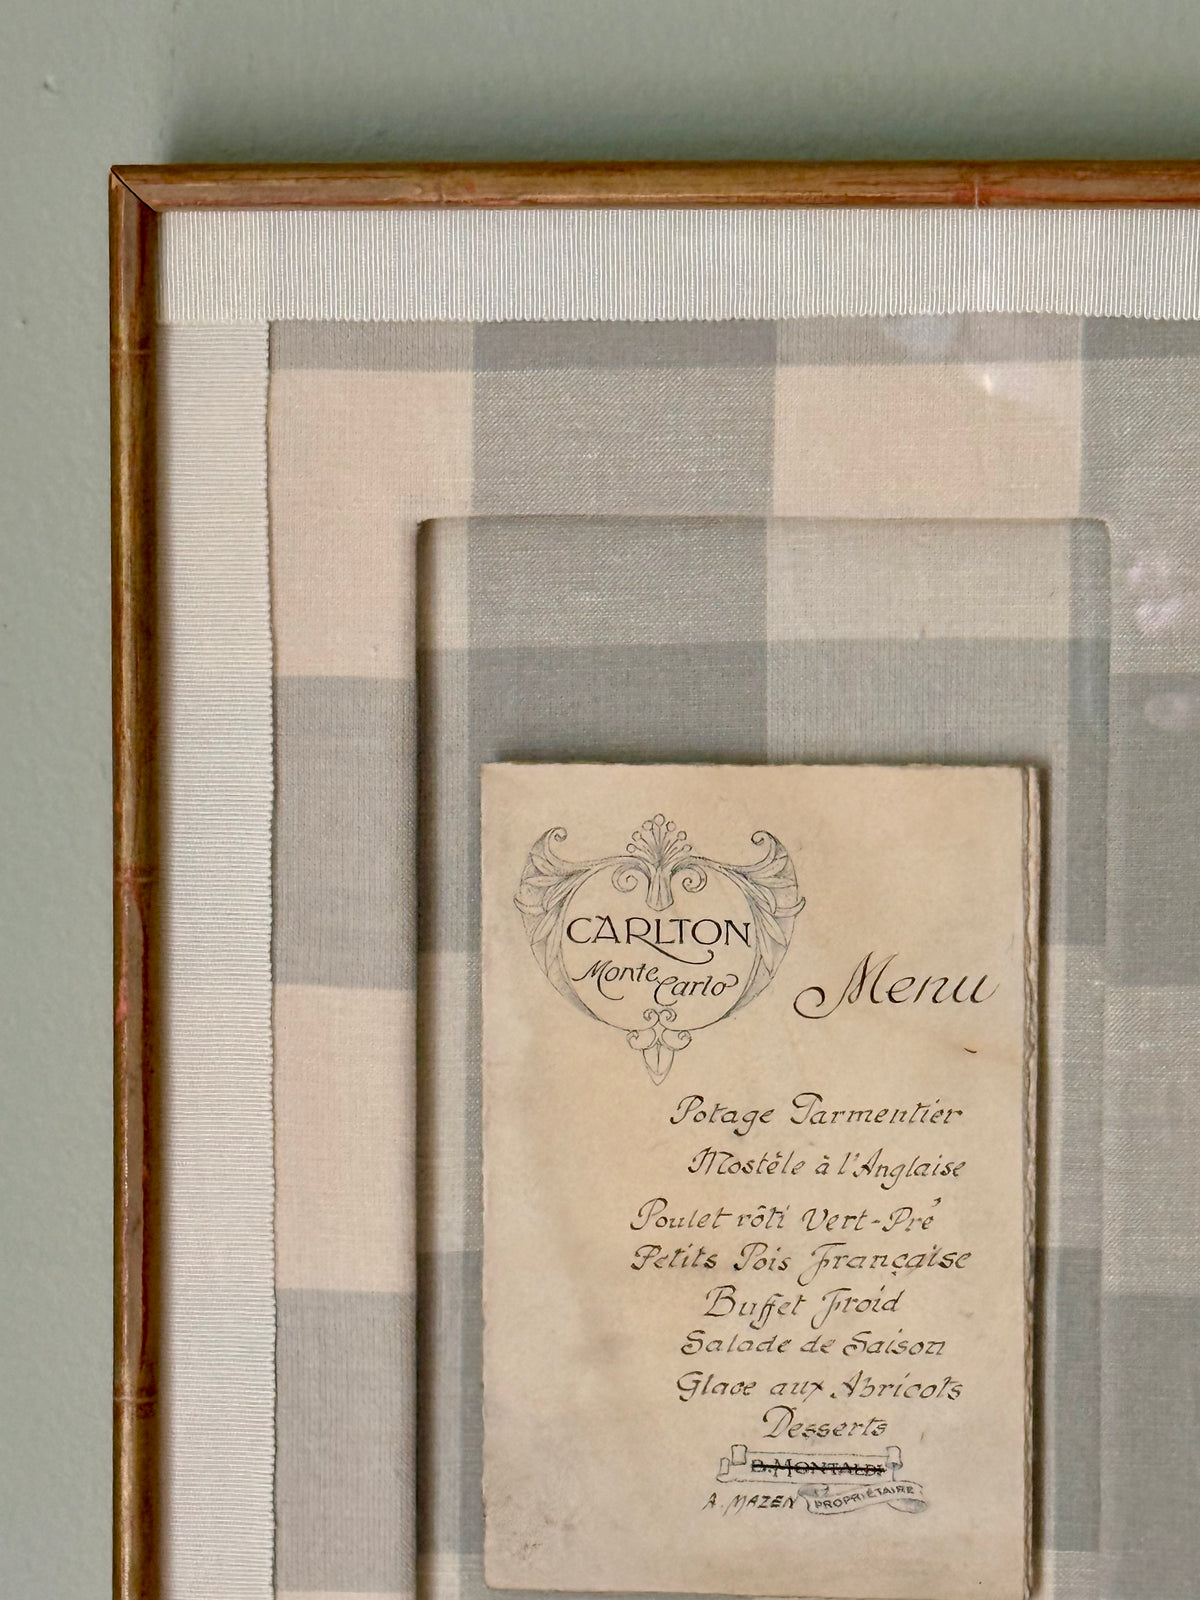 CARLTON
Monte Carlo
Menu
Potage Parmentier
Mostèle à l'Anglaise
Poulet rôti Vert-Pré
Petits Pois Française
Buffet Froid
Salade de Saison
Glace aux Abricots
Desserts
B. MONTALDI
A. MAZEN PROPRIÉTAIRE